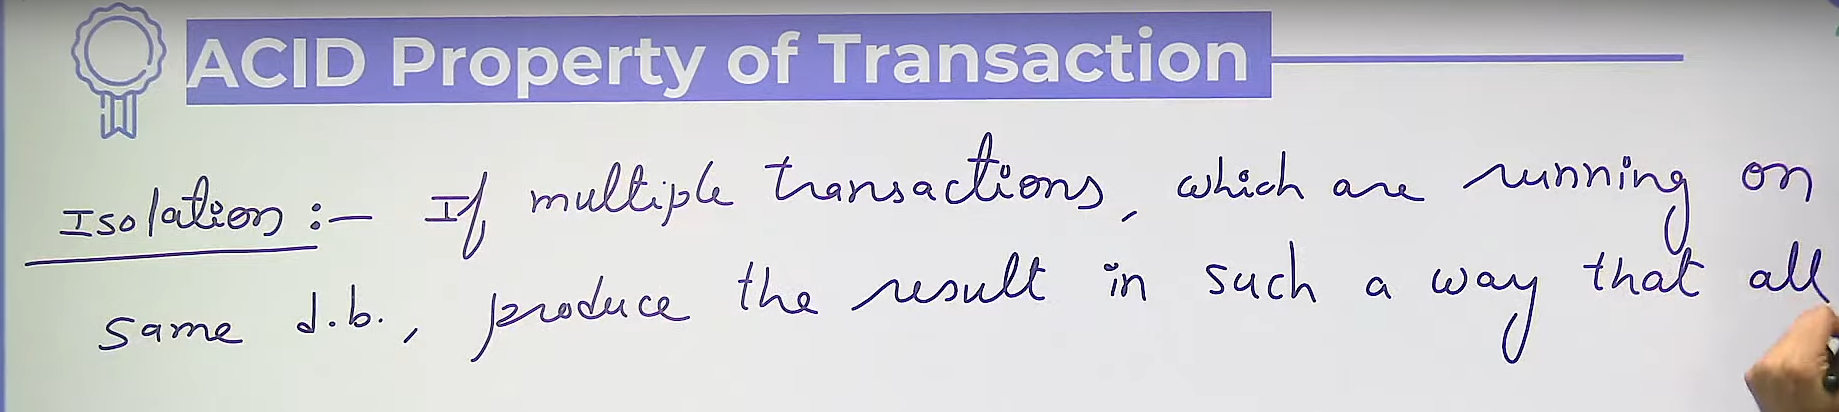 ACID Property of Transaction
Isolation :- If multiple transactions, which are running on
same d.b., produce the result in such a way that all